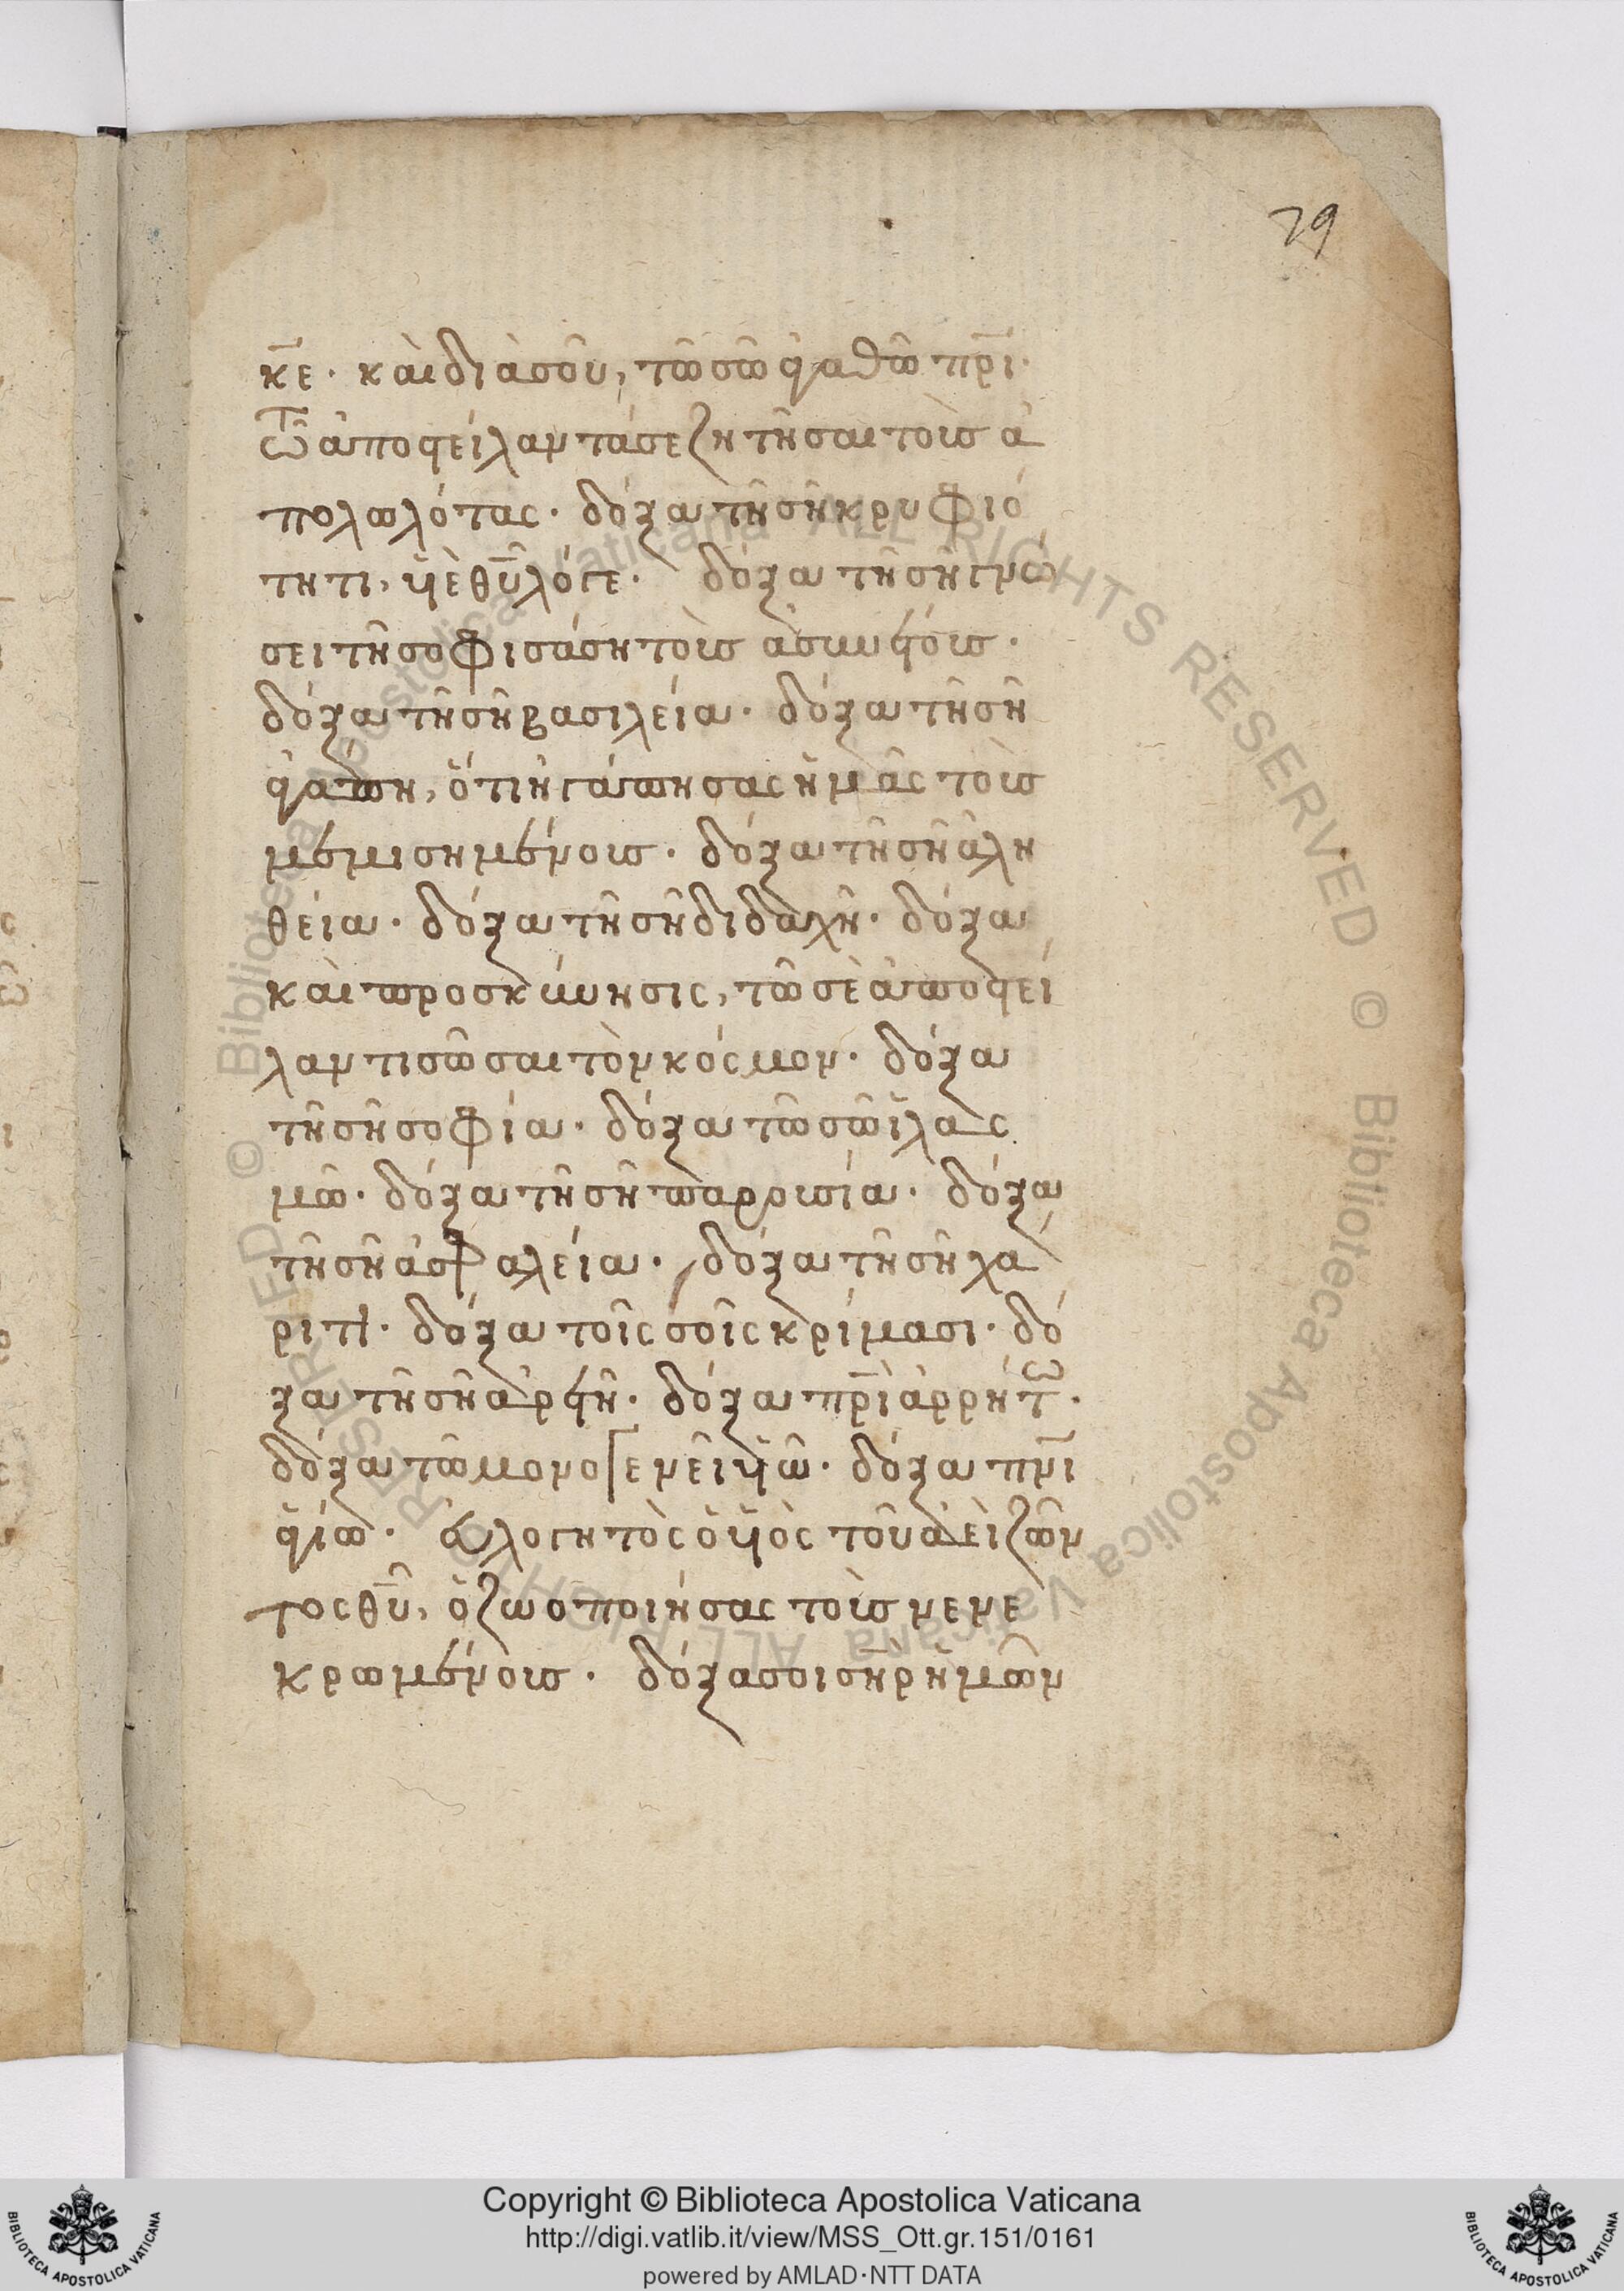 79
κ̅ε̅. καὶ διὰ σοῦ, τῶ σῶ ἀγαθῶ π̅ρ̅ι̅.
τῶ ἀποστείλαντά σε ζητῆσαι τοὺς ἀ
πολωλότας. δόξα τῆ σῆ κρυφιό
τητι, υἱὲ θ̅υ̅ λόγε. δόξα τῆ σῆ γνώ
σει τῆ σοφισάση τοὺς ἀσυνέτους.
δόξα τῆ σῆ βασιλεία. δόξα τῆ σῆ
ἀγάπη, ὅτι ἠγάπησας ἡμᾶς τοὺς
μεμισημένους. δόξα τῆ σῆ ἀλη
θεία. δόξα τῆ σῆ διδαχῆ. δόξα
καὶ προσκύνησις, τῶ σὲ ἀποστεί
λαντι σῶσαι τὸν κόσμον. δόξα
τῆ σῆ σοφία. δόξα τῶ σῶ ἱλασ
μῶ. δόξα τῆ σῆ παρουσία. δόξα
τῆ σῆ ἀσφαλεία. δόξα τῆ σῆ χά
ριτι. δόξα τοῖς σοῖς κρίμασι. δό
ξα τῆ σῆ ἀρετῆ. δόξα π̅ρ̅ὶ̅ ἀρρήτω.
δόξα τῶ μονογενεῖ υἱῶ. δόξα π̅ν̅ι̅
ἁγίω. εὐλογητὸς ὁ υἱὸς τοῦ ἀεὶ ζῶν
τος θ̅υ̅, ὁ ζωοποιήσας τοὺς νενε
κρωμένους. δόξα σοι σ̅η̅ρ̅ ἡμῶν
Copyright © Biblioteca Apostolica Vaticana
http://digi.vatlib.it/view/MSS_Ott.gr.151/0161
powered by AMLAD·NTT DATA
BIBLIOTECA APOSTOLICA VATICANA
BIBLIOTECA APOSTOLICA VATICANA
© Biblioteca Apostolica Vaticana ALL RIGHTS RESERVED © Biblioteca Apostolica Vaticana ALL RIGHTS RESERVED